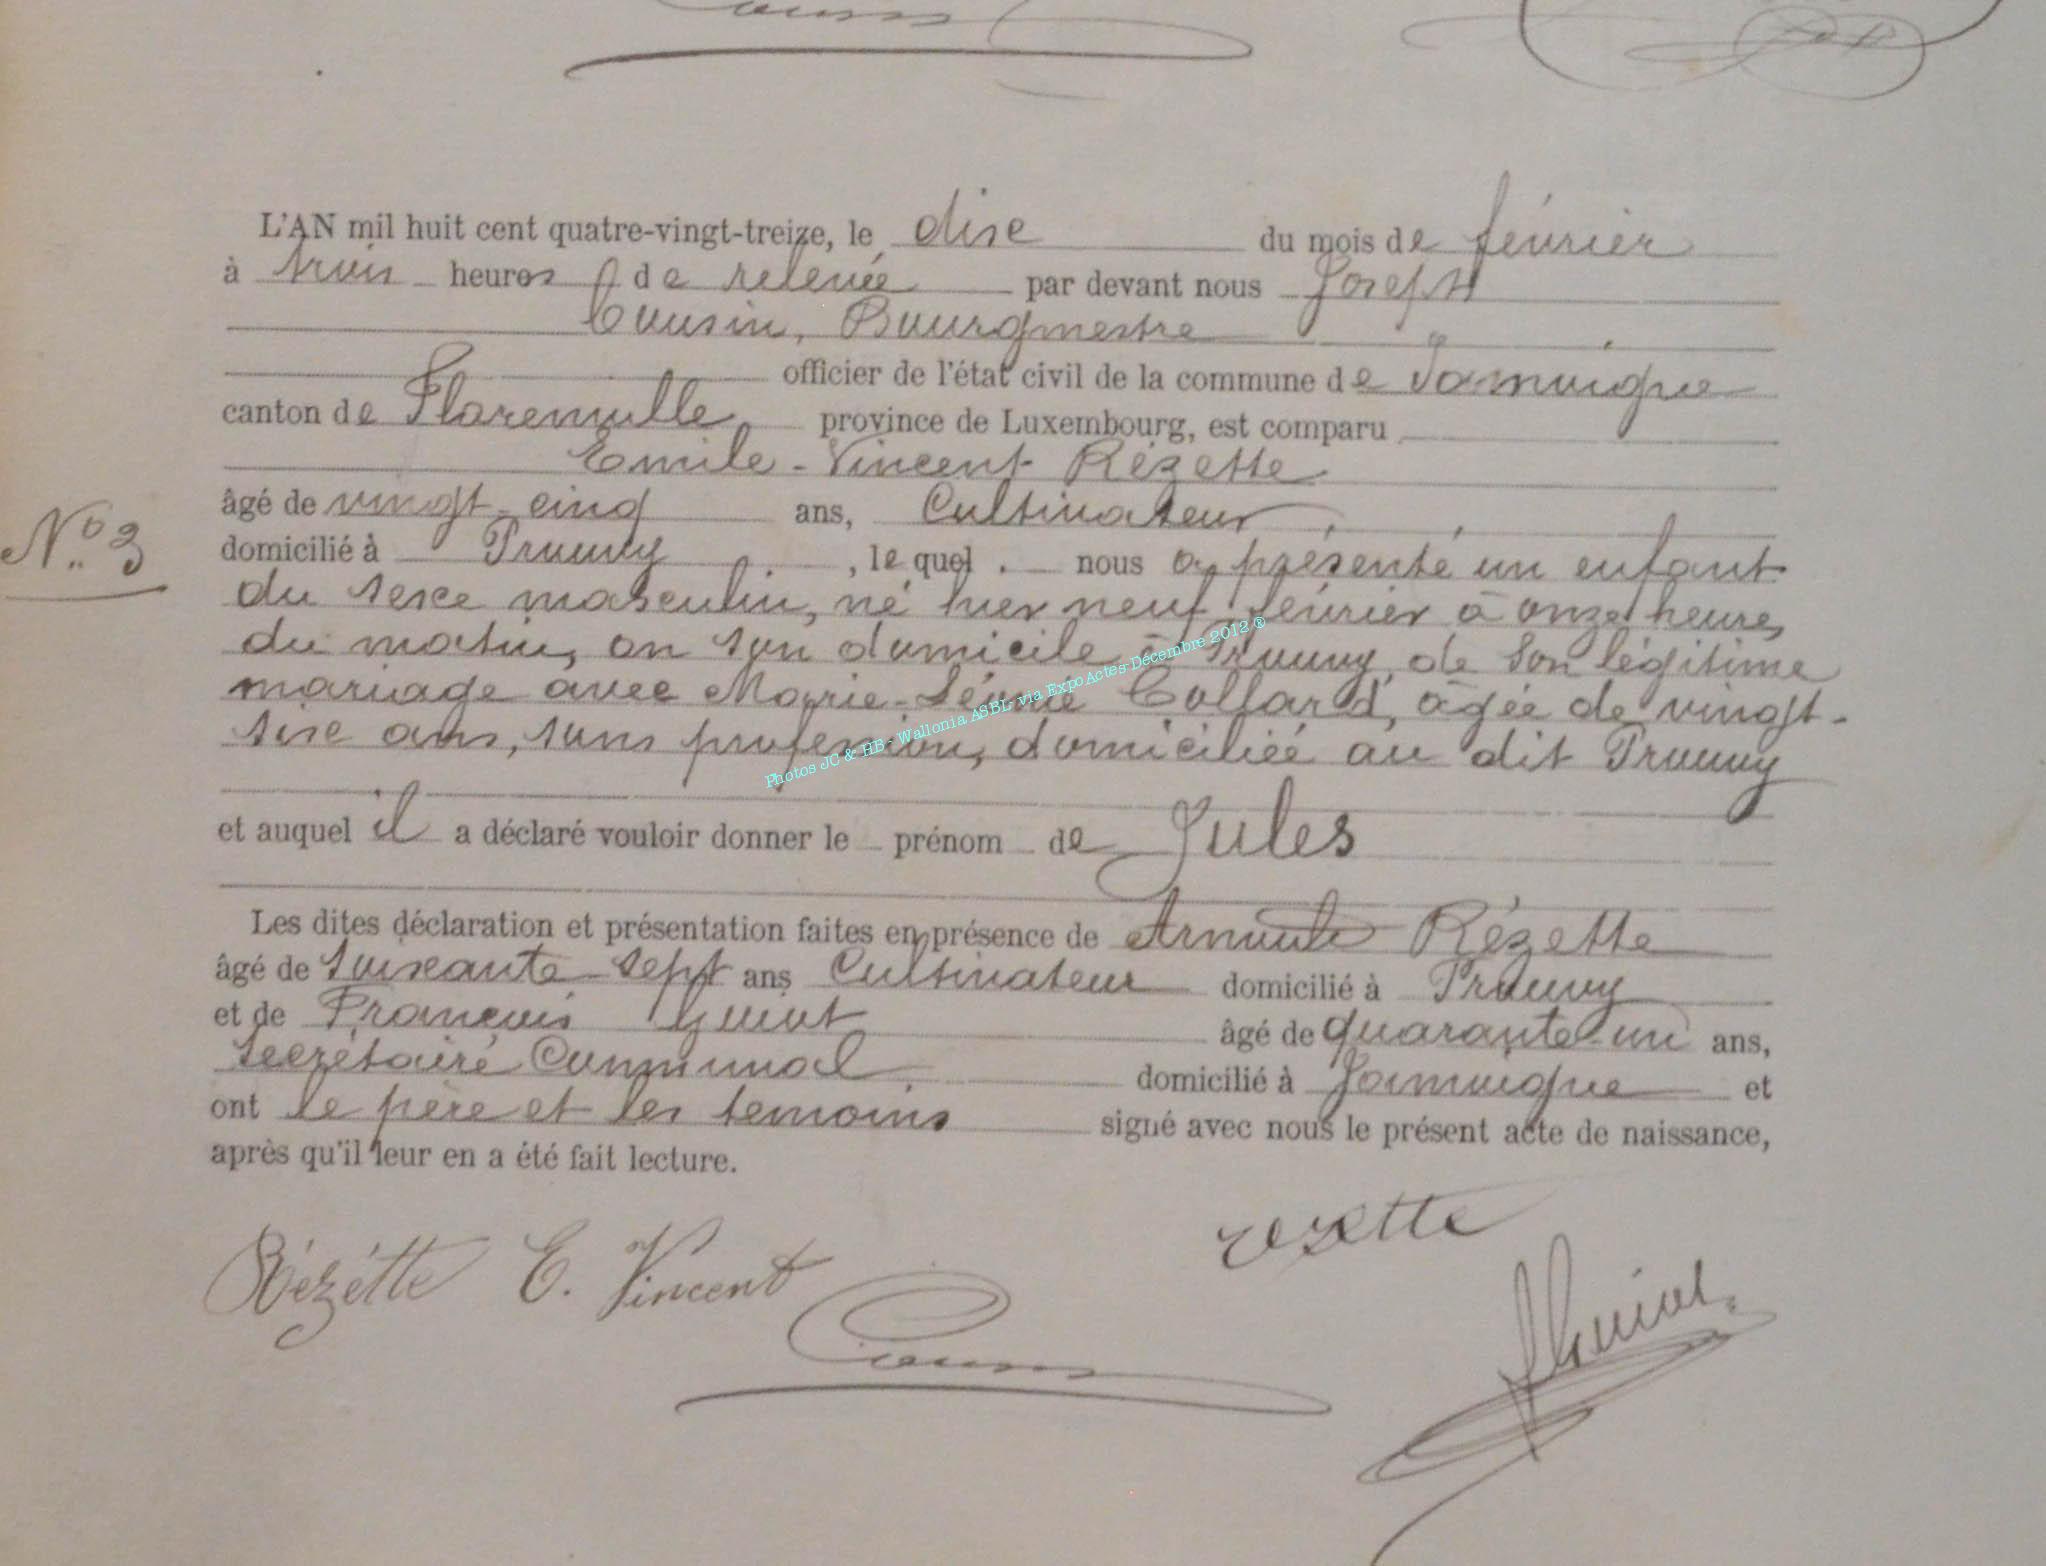 N.° 3
L'AN mil huit cent quatre-vingt-treize, le dixe du mois de février
à trois heures de relevée par devant nous Joseph
Cousin, Bourgmestre
officier de l'état civil de la commune de Jamoigne
canton de Florenville province de Luxembourg, est comparu
Emile-Vincent Rézette
âgé de vingt-cinq ans, Cultivateur,
domicilié à Prouvy, le quel nous a présenté un enfant
du sexe masculin, né hier neuf février à onze heures
du matin, en son domicile à Prouvy, de son légitime
mariage avec Marie-Léonie Collard, âgée de vingt-
sixe ans, sans profession, domiciliée au dit Prouvy
et auquel il a déclaré vouloir donner le prénom de Jules
Les dites déclaration et présentation faites en présence de Arnould Rézette
âgé de soixante-sept ans Cultivateur domicilié à Prouvy
et de François Guiot âgé de quarante-un ans,
secrétaire Communal domicilié à Jamoigne et
ont le père et les temoins signé avec nous le présent acte de naissance,
après qu'il leur en a été fait lecture.
rezette
Rézétte E. Vincent
Cousin
Guiot
Photos JC & HB - Wallonia ASBL via ExpoActes-Décembre 2012 ®